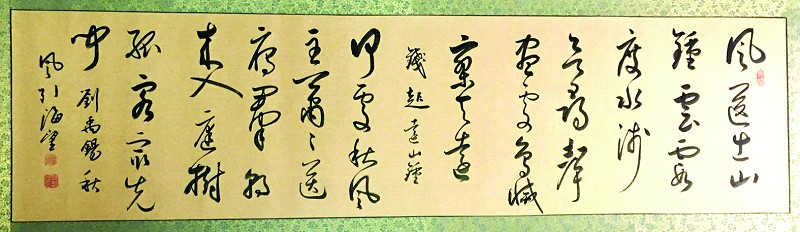 風送出山
鐘雲霞
度水浅
欲尋聲
盡處鳥滅
寥天遠
錢起遠山鐘
何處秋風
至蕭々送
雁群朝
来入庭樹
孤客最先
聞 劉禹錫秋
風引